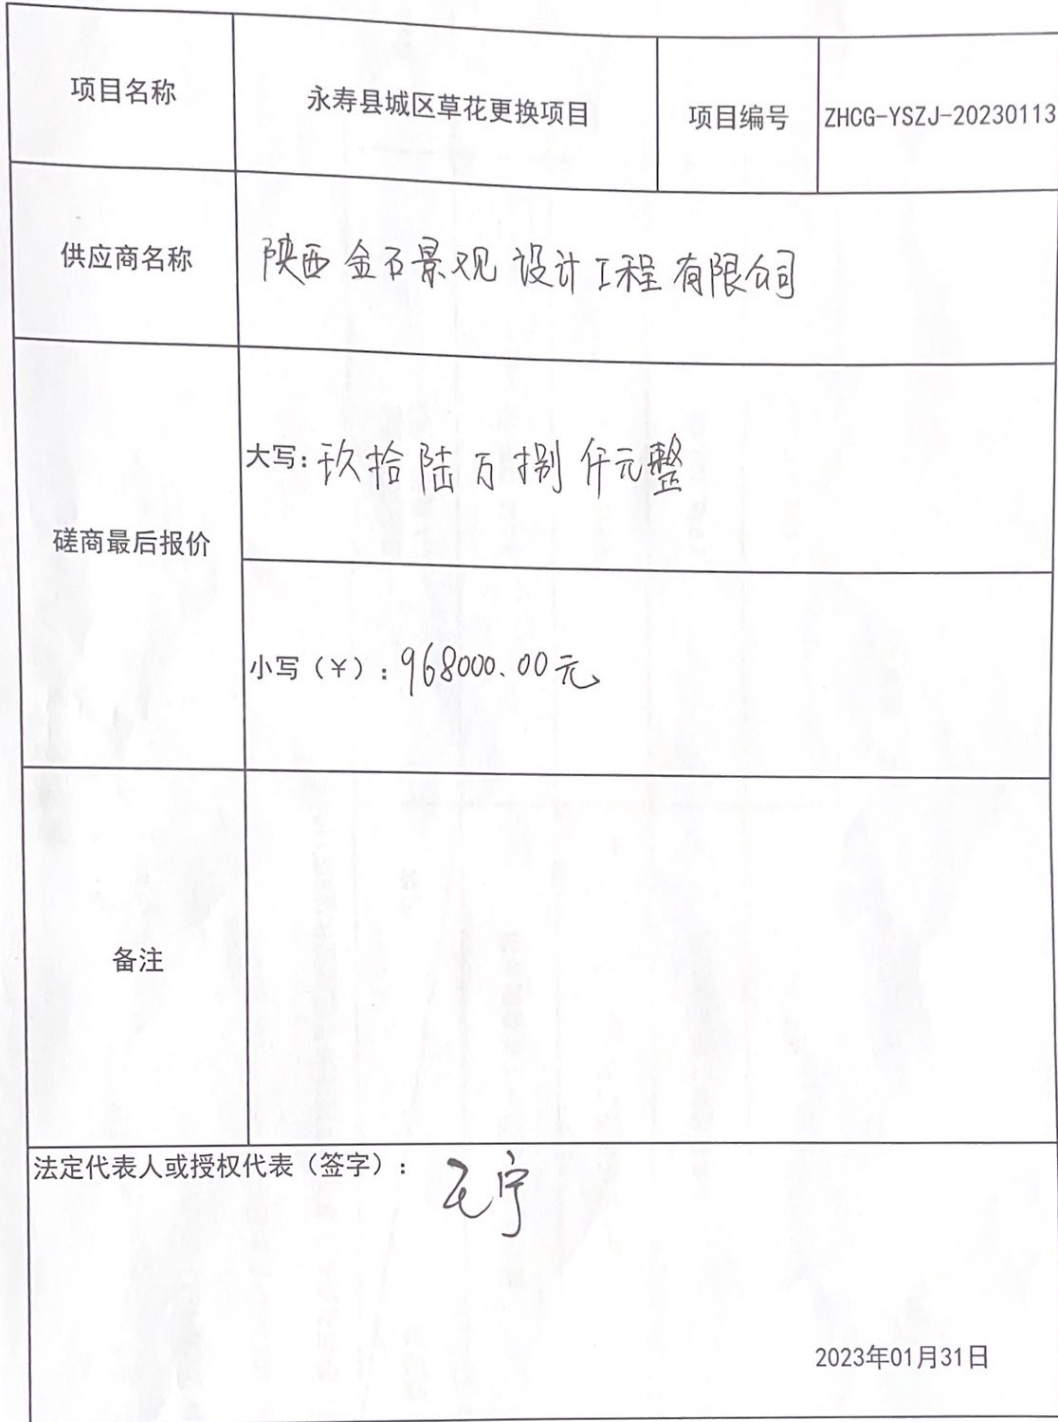 项目名称 永寿县城区草花更换项目 项目编号 ZHCG-YSZJ-20230113
供应商名称 陕西金石景观设计工程有限公司
磋商最后报价
大写:玖拾陆万捌仟元整
小写(¥):968000.00元
备注
法定代表人或授权代表(签字):
2023年01月31日